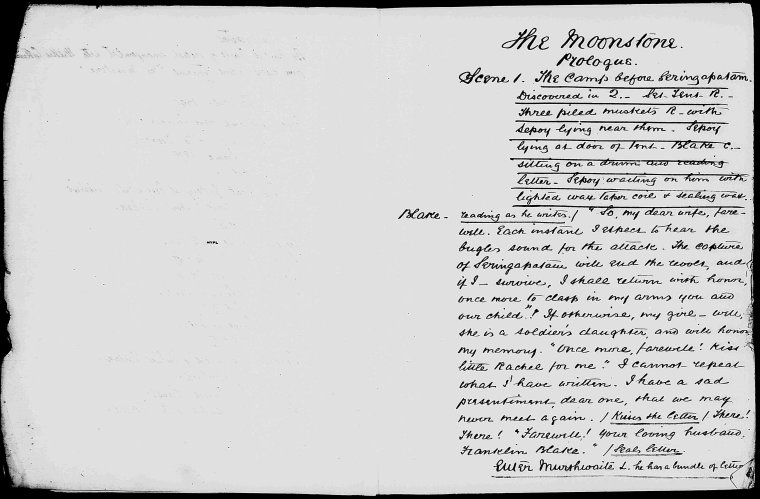 The Moonstone.
Prologue.
Scene 1. The Camp before Seringapatam.
Discovered in 2.- Set Tent R.-
Three piled muskets R- with
Sepoy lying near them. Sepoy
lying at door of tent- Blake C.-
sitting on a drum and reading
letter- Sepoy waiting on him with
lighted wax taper coil & sealing wax.
Blake- reading as he writes./ "So, my dear wife, fare-
well. Each instant I expect to hear the
bugles sound for the attack. The capture
of Seringapatam will end the revolt, and
if I- survive, I shall return with honor,
once more to clasp in my arms you and
our child"! If otherwise, my girl- well,
she is a soldier's daughter, and will honor
my memory. "Once more, farewell! Kiss
little Rachel for me". I cannot repeat
what I have written. I have a sad
presentiment, dear one, that we may
never meet again. /Kisses the letter/ There!
There! "Farewell! Your loving husband,
Franklin Blake." /Seals letter.
Enter Murthwaite L. he has a bundle of letters